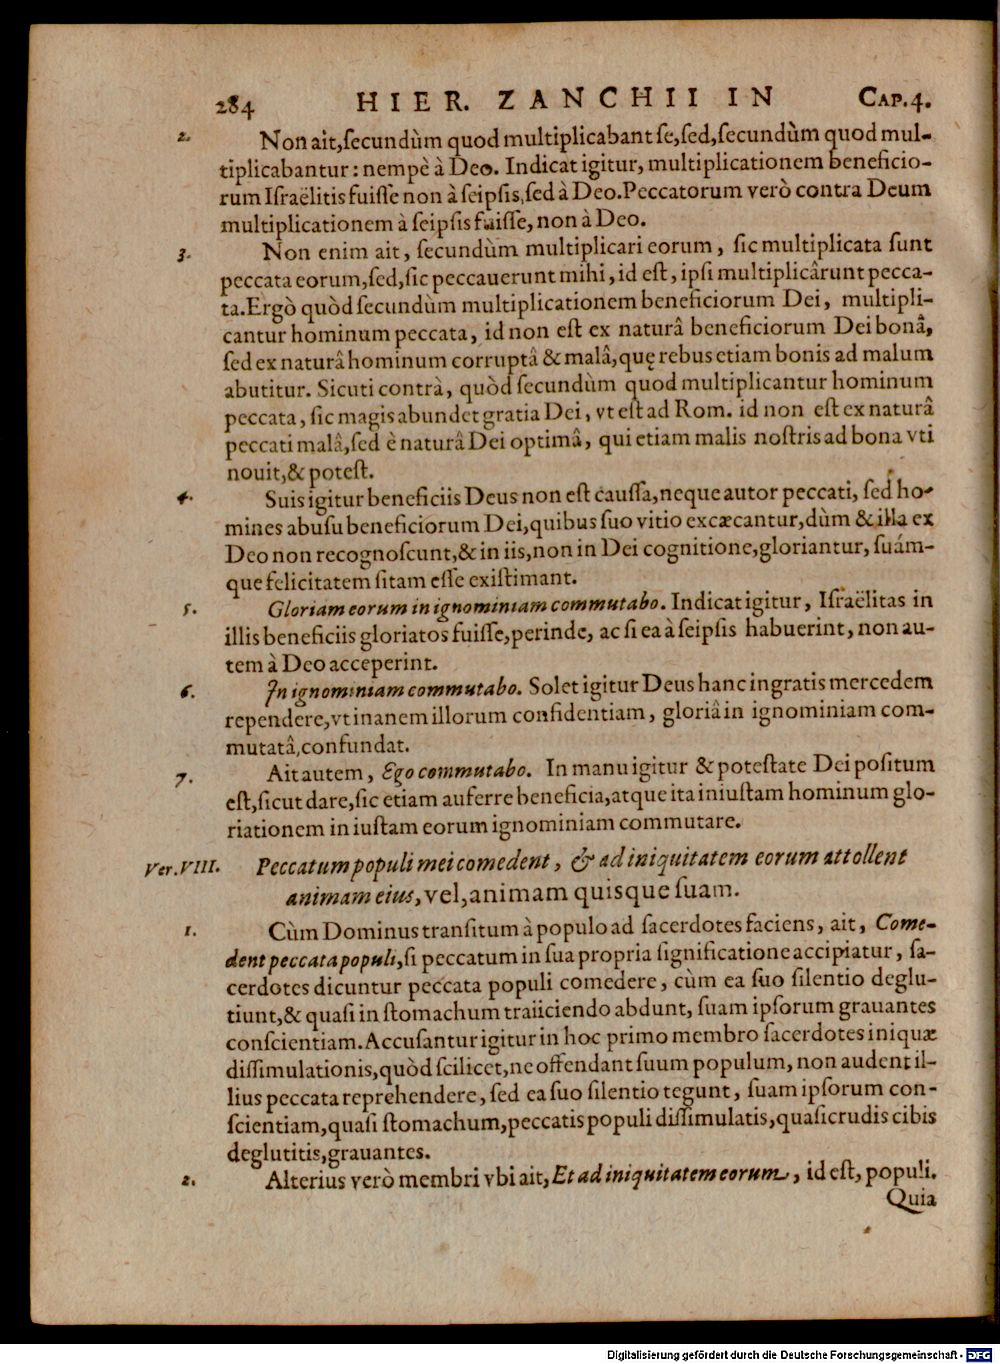 284 HIER. ZANCHII IN CAP.4.
2. Non ait,ſecundùm quod multiplicabant ſe,ſed,ſecundùm quod mul-
tiplicabantur: nempè à Deo. Indicat igitur, multiplicationem beneficio-
rum Iſraëlitis fuiſſe non à ſeipſis,ſed à Deo.Peccatorum verò contra Deum
multiplicationem à ſeipſis fuiſſe, non à Deo.
3. Non enim ait, ſecundùm multiplicari eorum, ſic multiplicata ſunt
peccata eorum,ſed,ſic peccauerunt mihi, id eſt, ipſi multiplicârunt pecca-
ta.Ergò quòd ſecundùm multiplicationem beneficiorum Dei, multipli-
cantur hominum peccata, id non eſt ex naturâ beneficiorum Dei bonâ,
ſed ex naturâ hominum corruptâ & malâ,quę rebus etiam bonis ad malum
abutitur. Sicuti contrà, quòd ſecundùm quod multiplicantur hominum
peccata, ſic magis abundet gratia Dei, vt eſt ad Rom. id non eſt ex naturâ
peccati malâ,ſed è naturâ Dei optimâ, qui etiam malis noſtris ad bona vti
nouit,& poteſt.
4. Suis igitur beneficiis Deus non eſt cauſſa,neque autor peccati, ſed ho-
mines abuſu beneficiorum Dei,quibus ſuo vitio excæcantur,dùm & illa ex
Deo non recognoſcunt,& in iis,non in Dei cognitione,gloriantur, ſuám-
que felicitatem ſitam eſſe exiſtimant.
5. Gloriam eorum in ignominiam commutabo. Indicat igitur, Iſraëlitas in
illis beneficiis gloriatos fuiſſe,perinde, ac ſi ea à ſeipſis habuerint, non au-
tem à Deo acceperint.
6. In ignominiam commutabo. Solet igitur Deus hanc ingratis mercedem
rependere,vt inanem illorum confidentiam, gloriâ in ignominiam com-
mutatâ,confundat.
7. Ait autem, Ego commutabo. In manu igitur & poteſtate Dei poſitum
eſt,ſicut dare,ſic etiam auferre beneficia,atque ita iniuſtam hominum glo-
riationem in iuſtam eorum ignominiam commutare.
Ver.VIII. Peccatum populi mei comedent, & ad iniquitatem eorum attollent
animam eius, vel, animam quisque ſuam.
1. Cùm Dominus tranſitum à populo ad ſacerdotes faciens, ait, Come-
dent peccata populi,ſi peccatum in ſua propria ſignificatione accipiatur, ſa-
cerdotes dicuntur peccata populi comedere, cùm ea ſuo ſilentio deglu-
tiunt,& quaſi in ſtomachum traiiciendo abdunt, ſuam ipſorum grauantes
conſcientiam. Accuſantur igitur in hoc primo membro ſacerdotes iniquæ
diſſimulationis,quòd ſcilicet,ne offendant ſuum populum, non audent il-
lius peccata reprehendere, ſed ea ſuo ſilentio tegunt, ſuam ipſorum con-
ſcientiam,quaſi ſtomachum,peccatis populi diſſimulatis,quaſi crudis cibis
deglutitis,grauantes.
2. Alterius verò membri vbi ait,Et ad iniquitatem eorum, id eſt, populi.
Quia
Digitalisierung gefördert durch die Deutsche Forschungsgemeinschaft - DFG